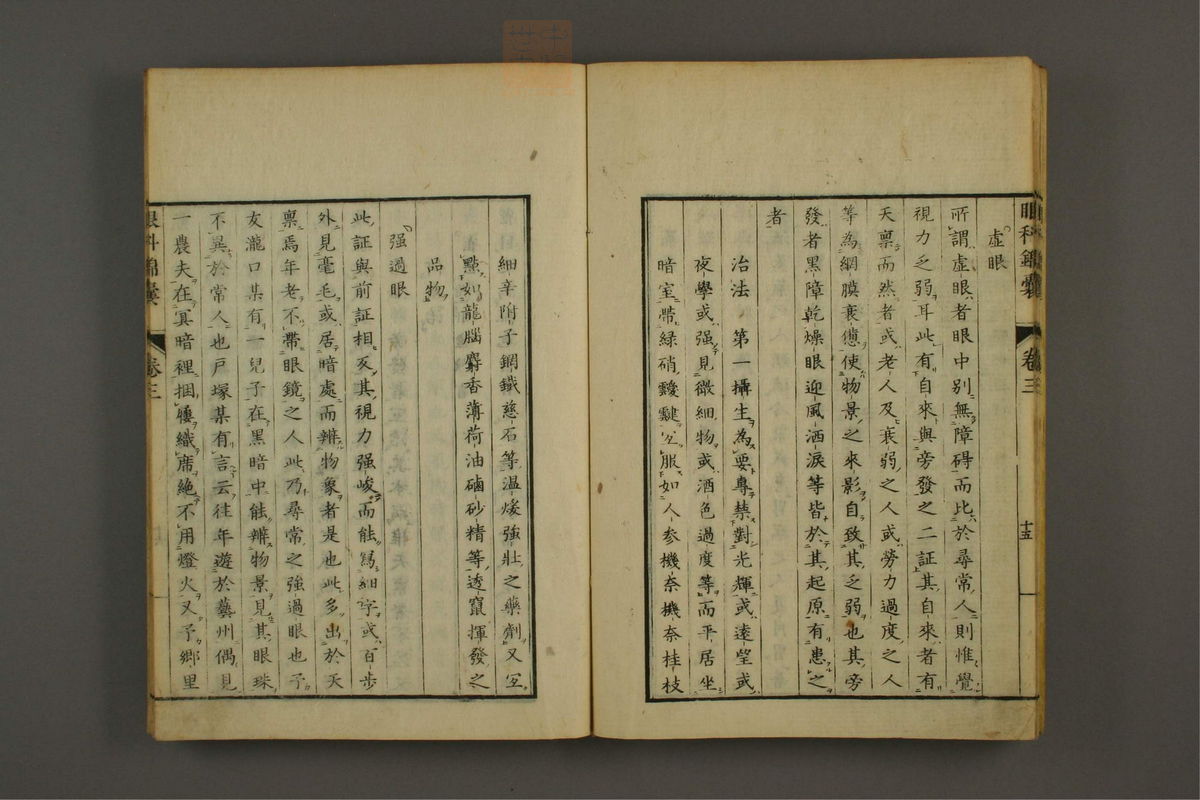 眼科錦囊 卷三 十五
虚眼
所謂虚眼者眼中別無障碍而比於尋常人則惟覺
視力乏弱耳此有自來與旁發之二証其自來者有
天禀而然者或老人及衰弱之人或勞力過度之人
等為網膜衰憊使物景之來影自致其乏弱也其旁
發者黒障乾燥眼迎風洒涙等皆於其起原有患之
者
治法 第一攝生為要專禁對光輝或遠望或
夜學或强見微細物或酒色過度等而平居坐
暗室帶緑硝靉靆宜服如人参機奈機奈桂枝
細辛附子鋼鐵慈石等温煖強壯之藥劑又宜
點如龍腦麝香薄荷油磠砂精等透竄揮發之
品物
强過眼
此証與前証相反其視力强峻而能寫細字或百步
外見毫毛或居暗處而辨物象者是也此多出於天
禀焉年老不帶眼鏡之人此乃尋常之強過眼也予
友瀧口某有一兒子在黒暗中能辨物景見其眼珠
不異於常人也戸塚某有言云往年遊於藝州偶見
一農夫在冥暗裡捆屨織席絶不用燈火又予郷里
眼科錦囊 卷三